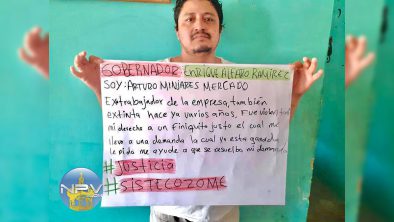 GOBERNADOR ENRIQUE ALFARO RAMÍREZ
SOY: ARTURO MINJARES MERCADO
Extrabajador de la empresa, también
extinta hace ya varios años. Fue violentado
mi derecho a un Finiquito justo el cual me
llevo a una demanda la cual ya esta ganada
le pido me ayude a que se resuelva mi demanda
#JUSTICIA
#SISTECOZOME
NPV